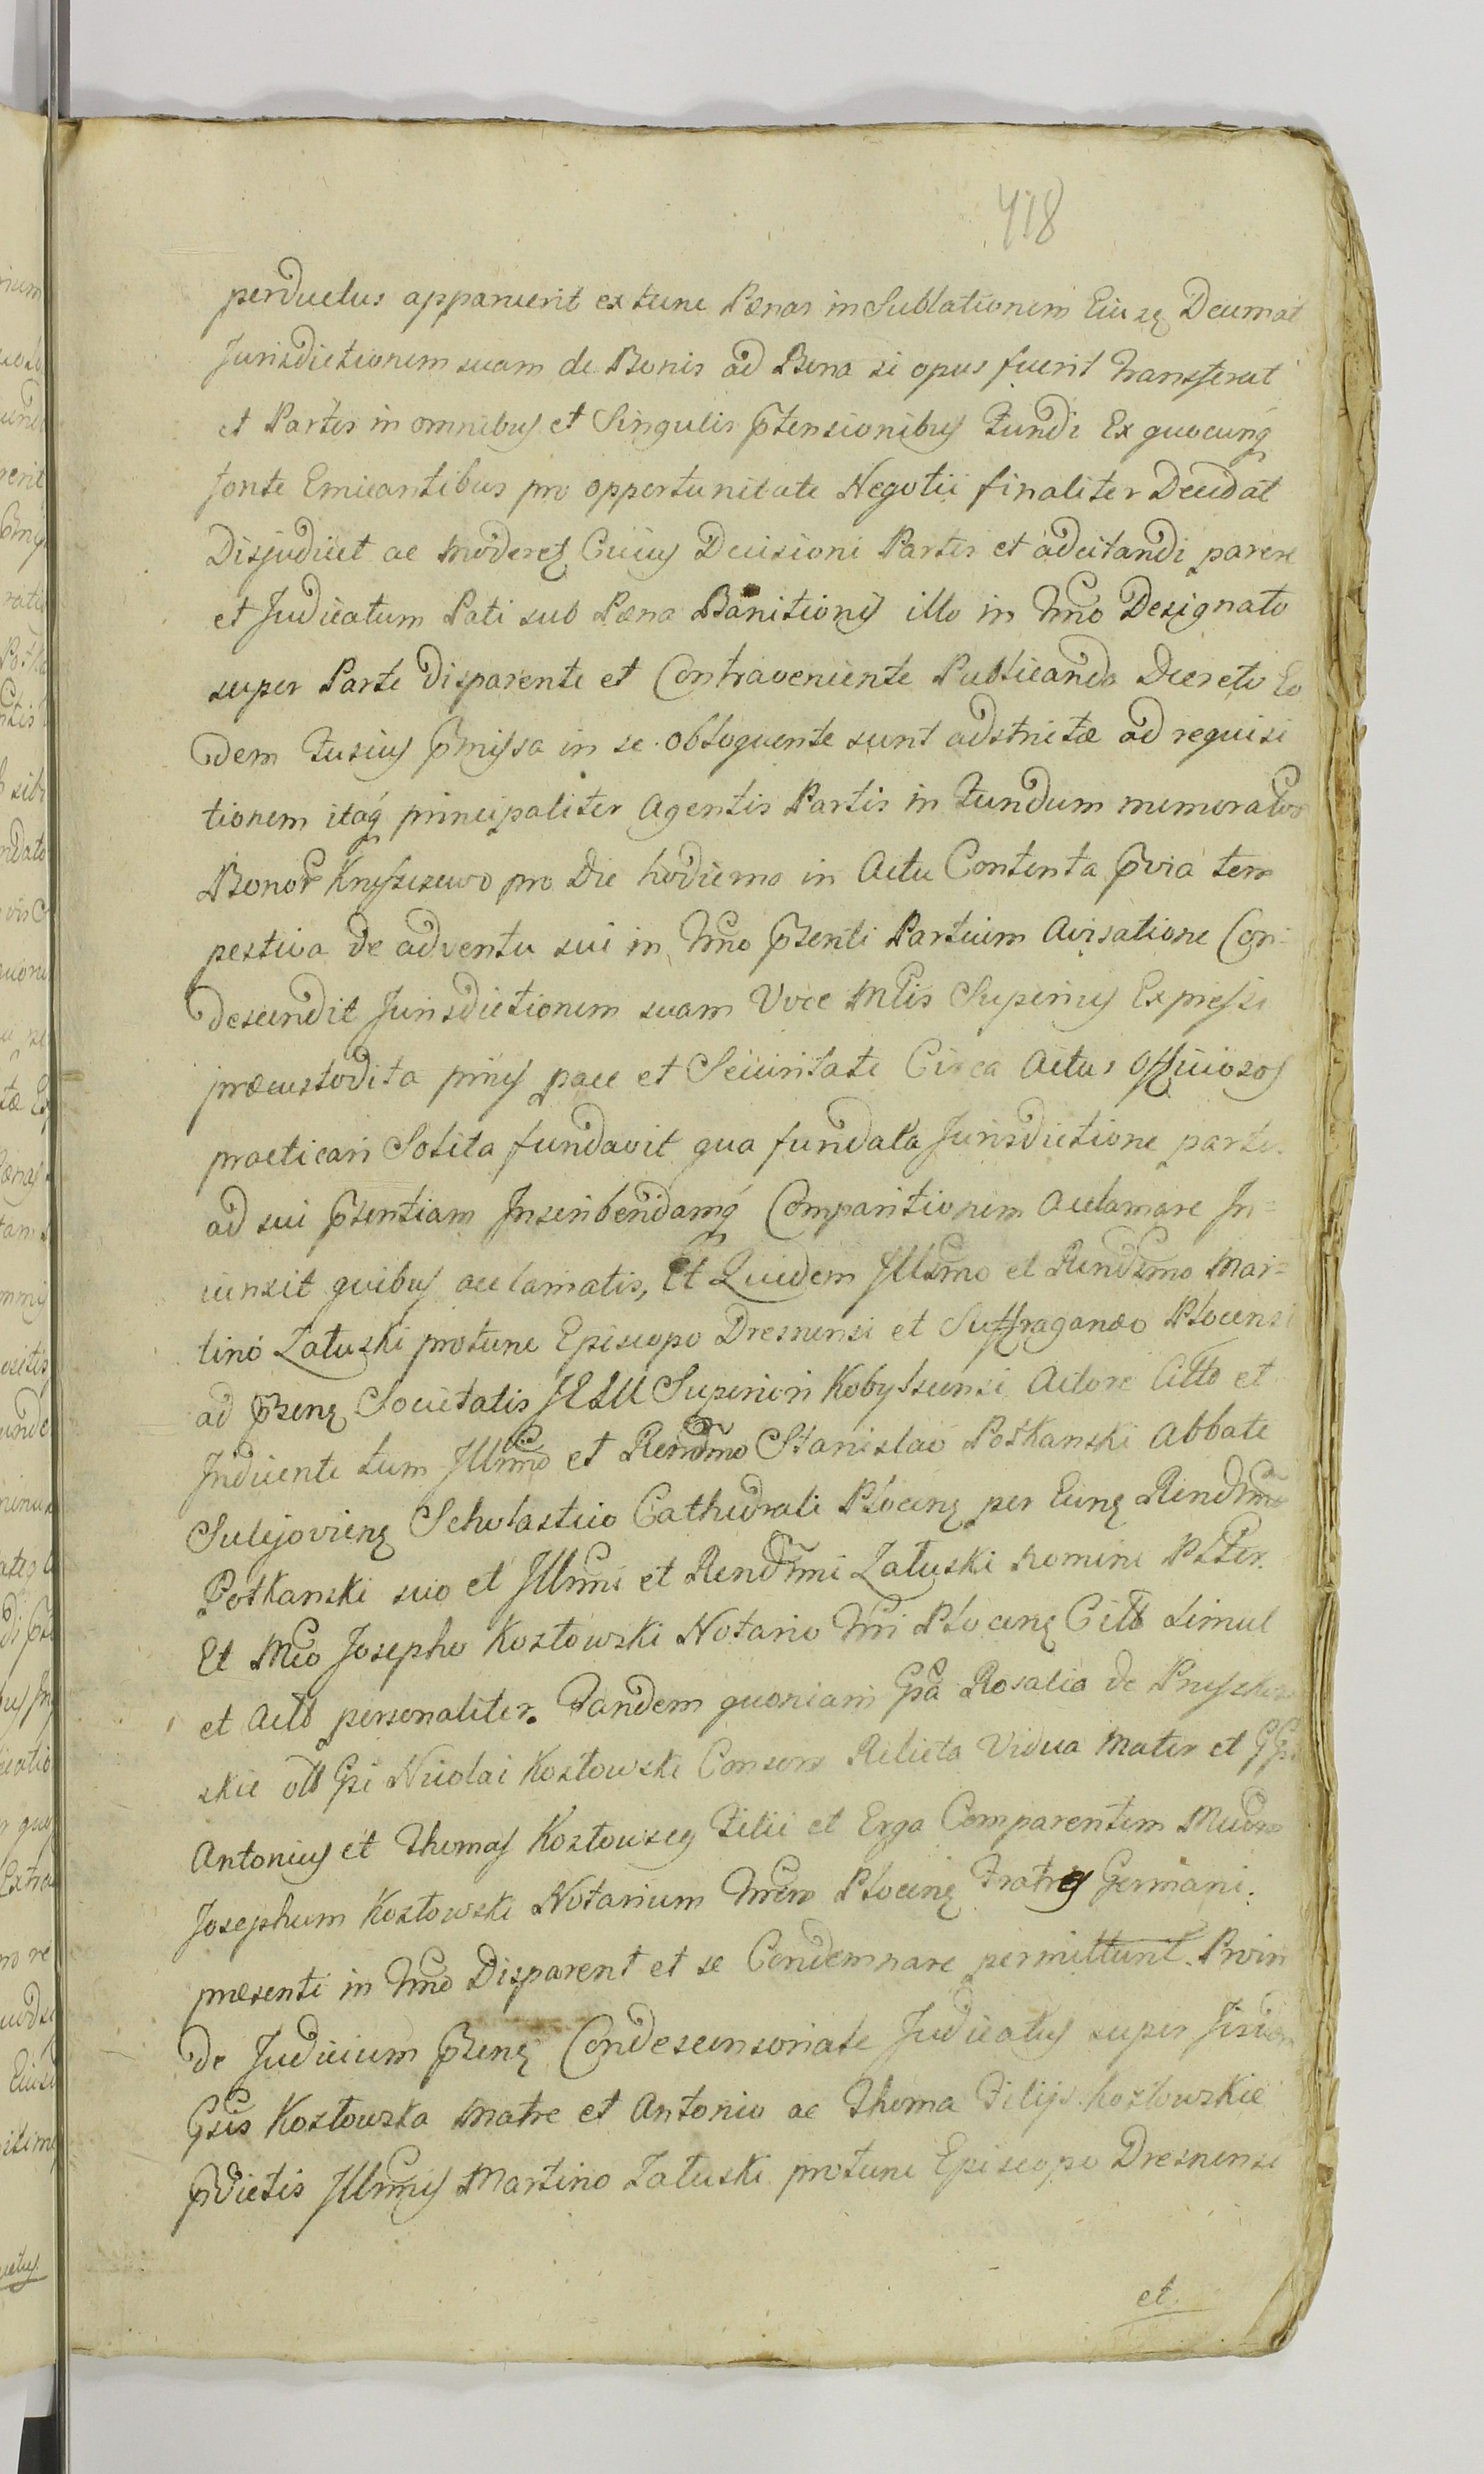 418
perductus apparuerit ex tunc Pœnas in Sublationem Eiusq Decernat
Jurisdictionem suam de Bonis ad Bona si opus fuerit transferat
et Partes in omnibus et Singulis p̃tensionibus Fundi Ex quocunq́
fonte Emicantibus pro opportunitate Negotii finaliter Decidat
Disjudicet ac Moderetz Cuius Decisioni Partes et adcitandi parere
et Judicatum Pati sub Pœna Banitionis illo in Tm̃no Designato
super Parte Disparente et Contraveniente Publicanda Decreto Eo
dem fusius p̃missa in se obloquente sunt adstrictæ ad requisi
tionem itaq́ principaliter Agentis Partis in Fundum memorator
Bonor Knyszewo pro Die hodierno in Actu Contenta p̃via tem
pestiva de adventu sui in Tm̃no p̃senti Partium Avisatione Con-
descendit Jurisdictionem suam Voce Mtlis Superius Expressi
præcustodita prius pace et Securitate Circa Actus Officiosos
practicari Solita fundavit qua fundata Jurisdictione partes
ad sui p̃sentiam Inscribendamq́ Comparitionem Acclamare In=
iunxit quibus acclamatis, Et Quidem Jllsmo et Rendsmo Mar=
tino Załuski protunc Episcopo Dresnensi et Suffraganæo Plocensi
ad p̃senq Societatis JESU Superiori Kobyłscensi Actore Citto et
Inducente tum Jllm̃o et Rendm̃o Stanislao Potkanski Abbate
Sulejovienq Scholastico Cathedrali Plocenq per Eunq Rendm̃o
Potkanski suo et Jllm̃i et Rendm̃i Załuski nomine Plter.
Et Mco Josepho Kozłowski Notario Tm̃i Plocenq Citt Simul
et Actt personaliter. Tandem quoniam Gsa Rosalia de Pnyszkow
skie ott Gsi Nicolai Kozłowski Consors Relicta Vidua Mater et GGsi
Antonius et Thomas Kozłowscy Filii et Erga Comparentem Mcum
Josephum Kozłowski Notarium Tm̃em Plocenq Fratres Germani
præsenti in Tm̃no Disparent et se Condemnare permittunt. Proin
de Judicium p̃senq Condescensoriale Judicatus super
Gsis Kozłowska Matre et Antonio ac Thoma Filijs Kozłowskie
p̃dictis Jllm̃us Martino Załuski protunc Episcopo Dresnensi
et